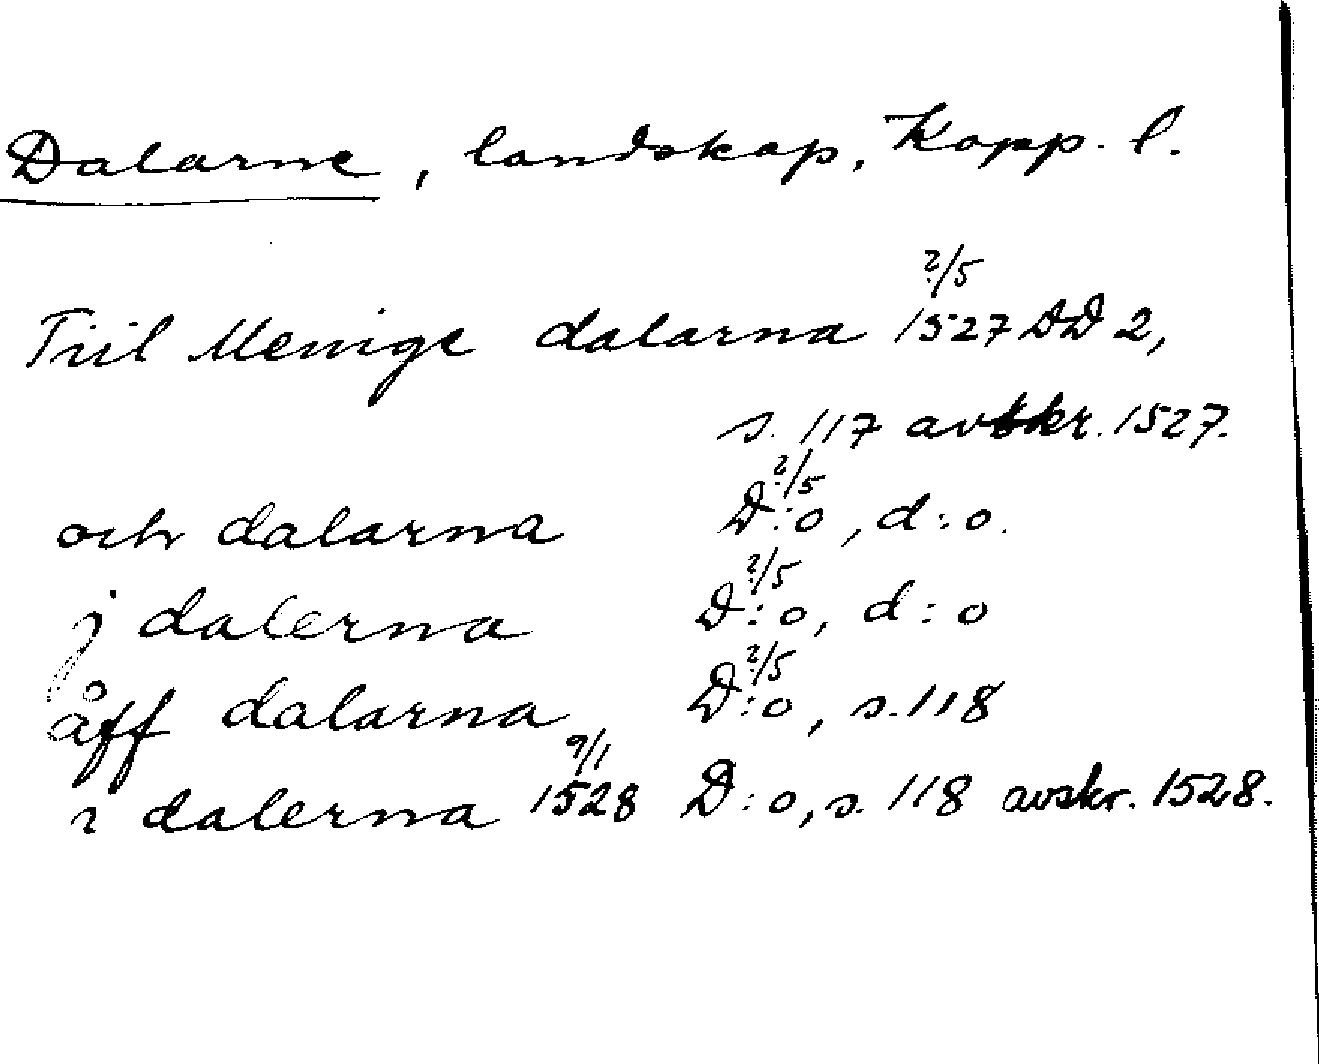 Dalarne, landskap, Kopp. l.
?/5
Tiil Menige dalarna 1527 DD 2,
s. 117 avskr. 1527.
?/5
och dalarna D:o, d:o.
?/5
j dalerna D:o, d:o
?/5
åff dalarna D:o, s. 118
9/1
i dalerna 1528 D:o, s. 118 avskr. 1528.